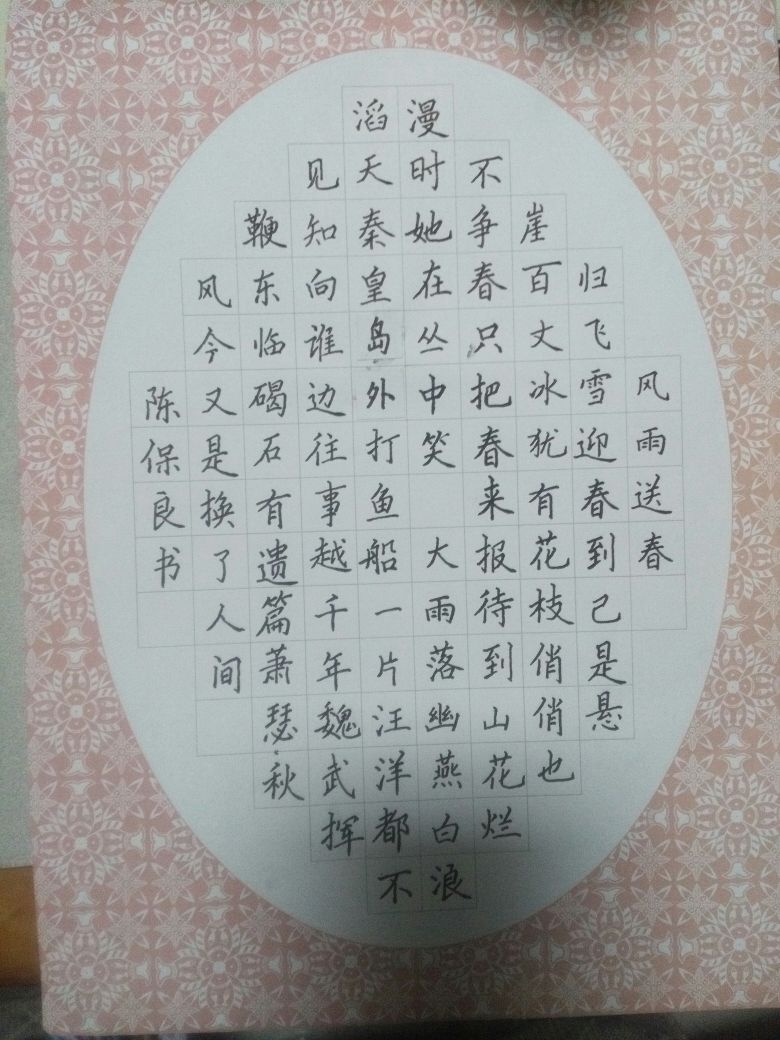 风雨送春
归飞雪迎春到己是悬
崖百丈冰犹有花枝俏俏也
不争春只把春来报待到山花烂
漫时她在丛中笑 大雨落幽燕白浪
滔天秦皇岛外打鱼船一片汪洋都不
见知向谁边往事越千年魏武挥
鞭东临碣石有遗篇萧瑟秋
风今又是换了人间
陈保良书